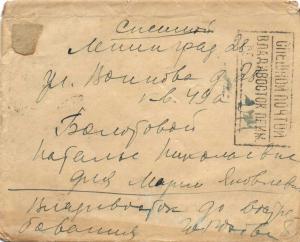 Спешной
Ленинград 28
ул. Воинова д. 28
кв. 49а
Болотовой
Наталье Николаевне
для Марии Яковлевны
Владивосток до востре
бования
СПЕШНОЙ ПОЧТОЙ
ВЛАДИВОСТОК